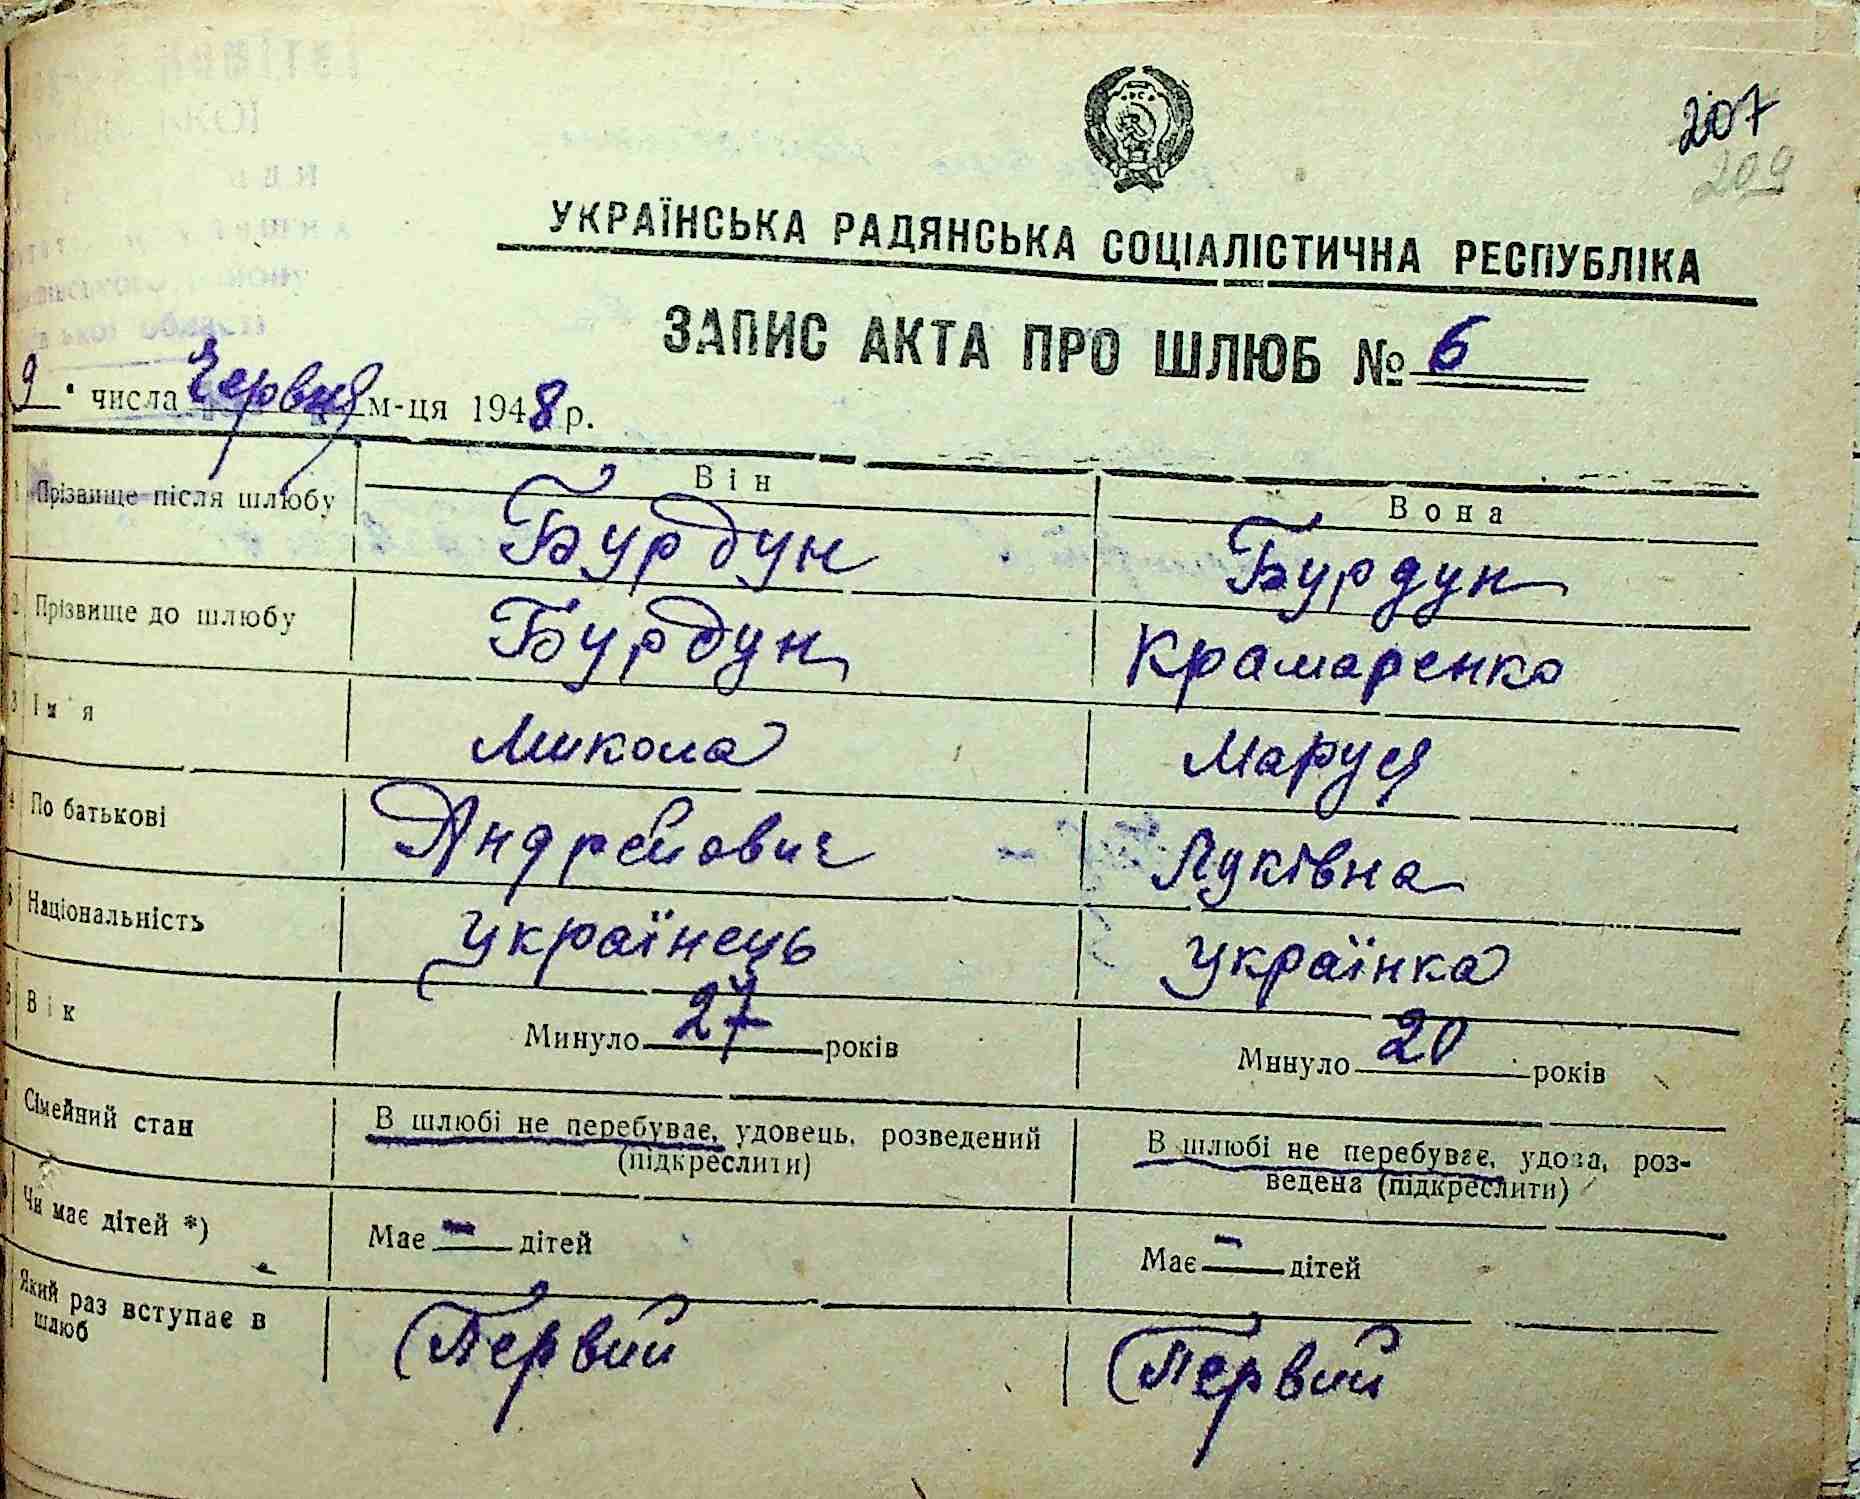 207
209
УКРАЇНСЬКА РАДЯНСЬКА СОЦІАЛІСТИЧНА РЕСПУБЛІКА
ЗАПИС АКТА ПРО ШЛЮБ № 6
9 " числа Червня м-ця 1948 р.
Він Вона
1 Прізвище після шлюбу Бурдун Бурдун
2 Прізвище до шлюбу Бурдун Крамаренко
3 Ім'я Микола Маруся
4 По батькові Андрейович Луківна
5 Національність українець українка
6 Вік Минуло 27 років Минуло 20 років
7 Сімейний стан В шлюбі не перебуває, удовець, розведений (підкреслити) В шлюбі не перебуває, удова, роз-
ведена (підкреслити)
Чи має дітей *) Має — дітей Має — дітей
Який раз вступає в шлюб Первий Первий